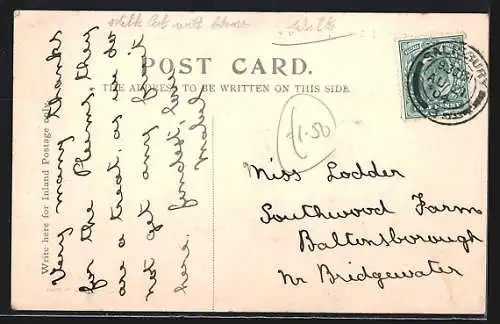 Wilts
POST CARD.
THE ADDRESS TO BE WRITTEN ON THIS SIDE
Write here for Inland Postage only.
Very many thanks
for the Plums, they
are a treat, as we do
not get any fruit
here. fondest love
Mabel
1.50
Miss Lodder
Southwood Farm
Baltonsborough
Nr Bridgewater